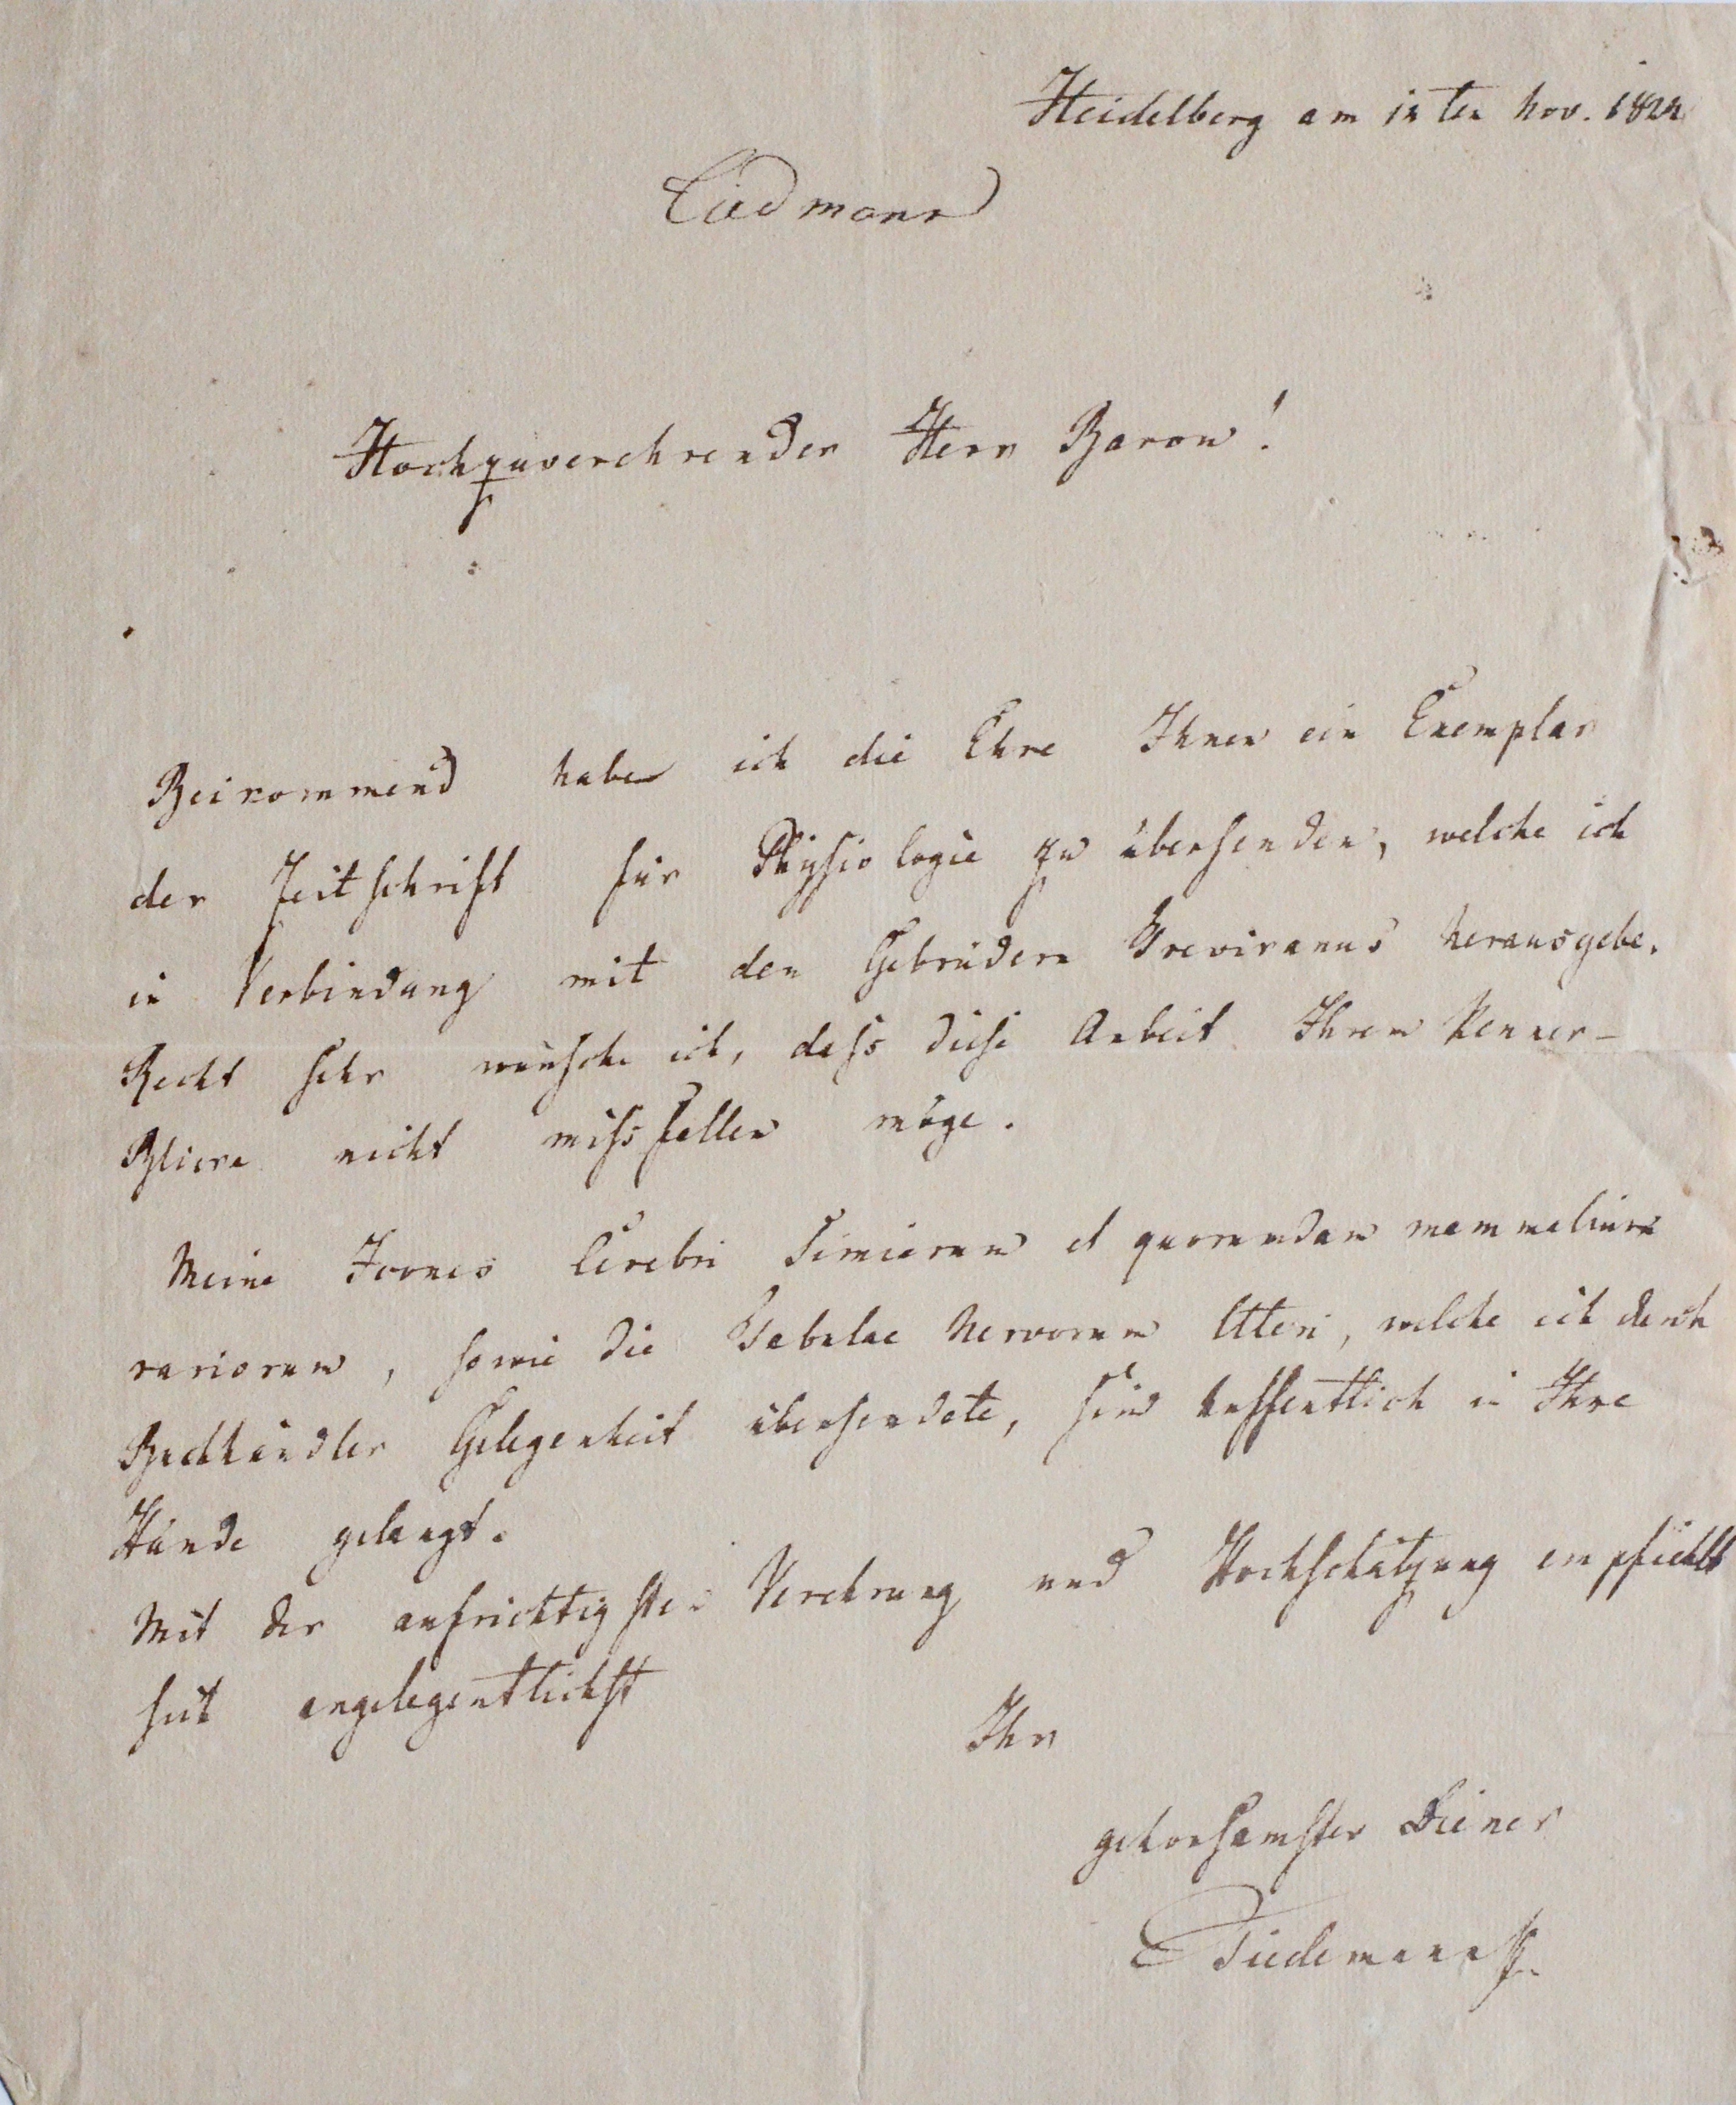 Heidelberg am 12ten Nov. 1824
Tiedmann
Hochzuverehrender Herr Baron!
Beikommend habe ich die Ehre Ihnen ein Exemplar
der Zeitschrift für Physiologie zu übersenden, welche ich
in Verbindung mit den Gebrüdern Treviranus herausgebe.
Recht sehr wünsche ich, dass diese Arbeit Ihrem Kenner-
Blicke nicht missfallen möge.
Meine Icones Cerebri Simiarum et quorundam mammalium
rariorum, sowie die Tabulae Nervorum Uteri, welche ich durch
Buchhändler Gelegenheit übersendete, sind hoffentlich in Ihre
Hände gelangt.
Mit der aufrichtigsten Verehrung und Hochschätzung empfiehlt
sich angelegentlichst
Ihr
gehorsamster Diener
Tiedemann